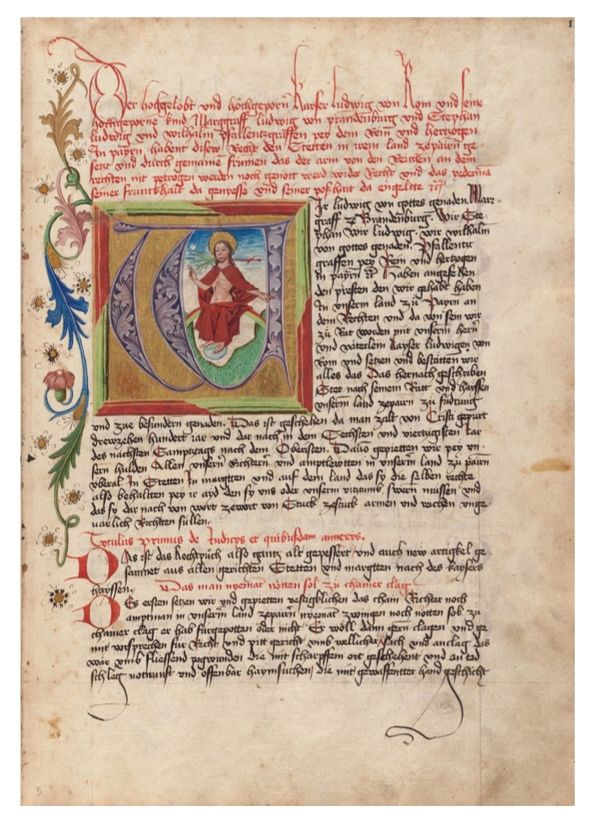 1
Der hochgelobt vnd hochgeporn kayser ludwig von Rom vnd seine
hochgeporne kind Marggraff ludwig von prandenburg vnd Stephan
ludwig vnd wilhalm pfallentzgraffen pey dem Rein vnd hertzogen
In payrn, habent disew Recht den Stetten in irem land ze payrn ge-
setzt vnd durch gemaine frumen das der arm von den Reichen an dem
rechten nit petrogen werden noch genött werd wider Recht vnd das yederman
seiner frumckhait da geniesse vnd seiner poßhait da engelte
Wir ludwig von gottes genaden Mar-
graff ze Brandenburg. Wir Ste-
phan Wir ludwig. wir wilhalm
von gottes genaden. Pfallentz
graffen pey Rein vnd hertzogen
in payrn Haben angesehen
den presten den wir gehabt haben
In vnserm land zu Payrn an
dem Rechten vnd da von sein wir
zu Rat worden mit vnserm hern
vnd väterlein kayser ludwigen von
Rom vnd setzen vnd bestätten wir
alles das Das hernach geschriben
Stet nach seinem Ratt vnd hayssen
vnserm land ze payrn zu
vnd zue besundern genaden. Das ist geschehen da man zalt von Cristi gepurt
drewzehen hundert iar vnd dar nach in dem Sechsten vnd viertzigsten Jar
des nächsten Samptztags nach dem Obersten. Dauo gepietten wir pey vn-
sern hulden Allen vnsern Richtern vnd amptlewten in vnserm land zu pairn
vberal In Stetten In margtten vnd auf dem land das sy die selben rechte
also behalten pey ir ayd den sy vns oder vnserm swern mussen vnd
das sy dar nach von wort ze wort von Stuck ze stuck armen vnd reichen vnge-
uärlich Richten süllen.
Titulus primus de Iudicys et quibusdam annexis.
Das ist das Rechtpuch also gantz alt gepessert vnd auch new artigkel ge-
samnet aus allen gerichten Stetten vnd margtten nach des kaysers
hayssen. Das man nyemat notten sol zu chainer clag
Des ersten setzen wir vnd gepietten vestigklichen das chain Richter noch
amptman in vnserm land ze payrn nyemat zwingen noch notten sol zu
chainer clag er hab furgepotten oder nicht Er wöll dann gern clagen vnd ge
mit vorsprechen für Recht vnd pitt gericht vmb wellicher sach vnd anclag das
wär vmb fliessend pogwunden die mit scharpffem ort geschehent vnd an tod
schleg notnunft vnd offenbar haymsuchen die mit gewaffentter hand geschicht
5